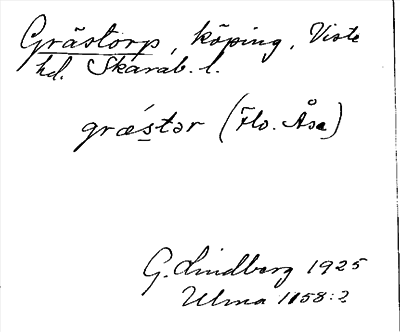 Grästorp, köping, Viste
hd. Skarab. l.
græ´stər (Flo. Åsa)
G. Lindberg 1925
Ulma 1158:2